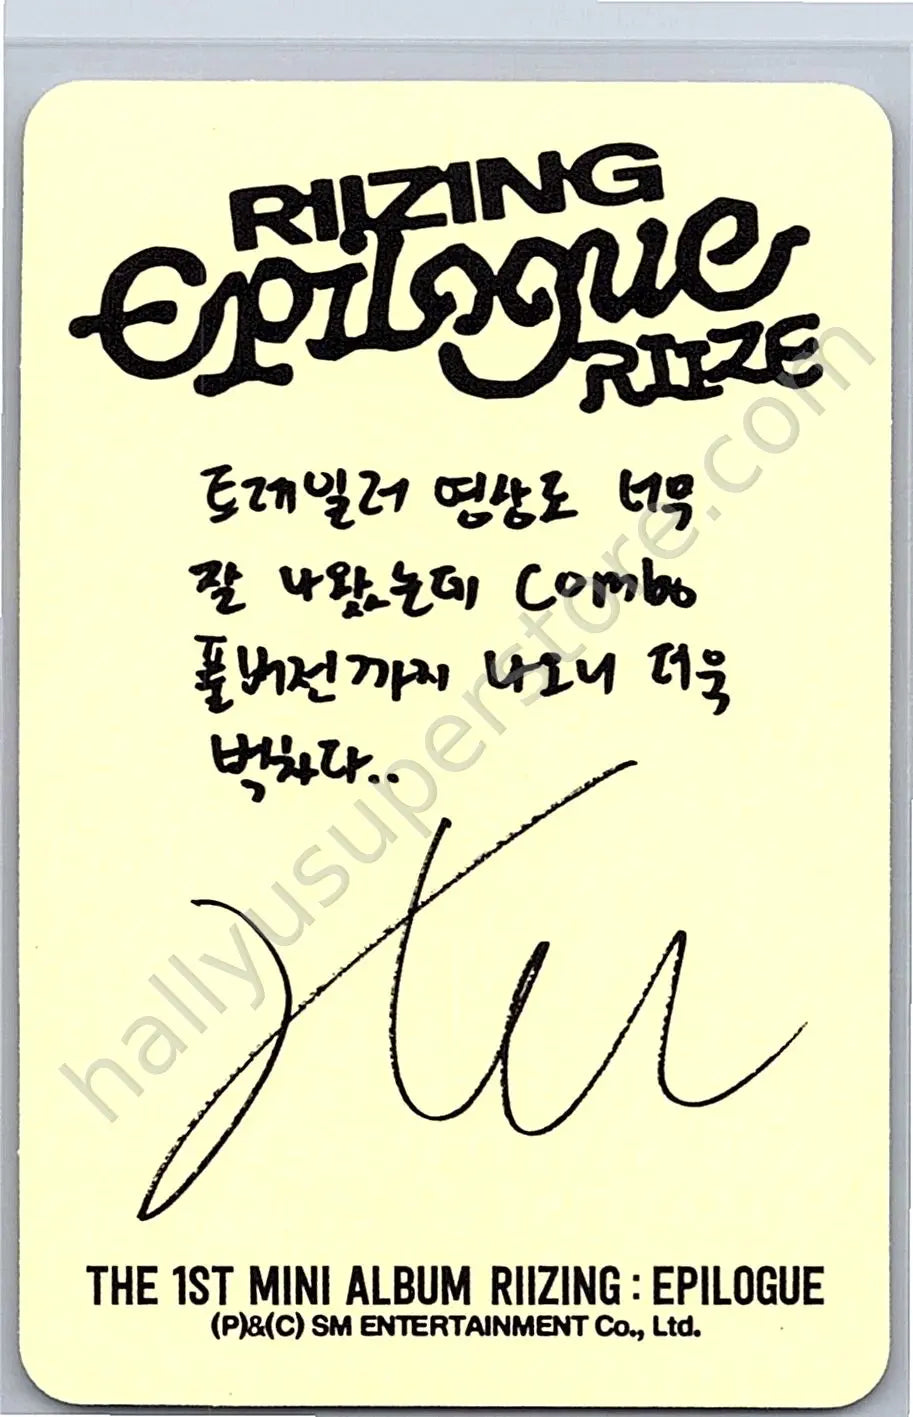 RIIZING
Epilogue
RIIZE
트레일러 영상도 너무
잘 나왔는데 Combo
풀버전까지 나오니 더욱
벅차다..
THE 1ST MINI ALBUM RIIZING : EPILOGUE
(P)&(C) SM ENTERTAINMENT Co., Ltd.
hallyusuperstore.com